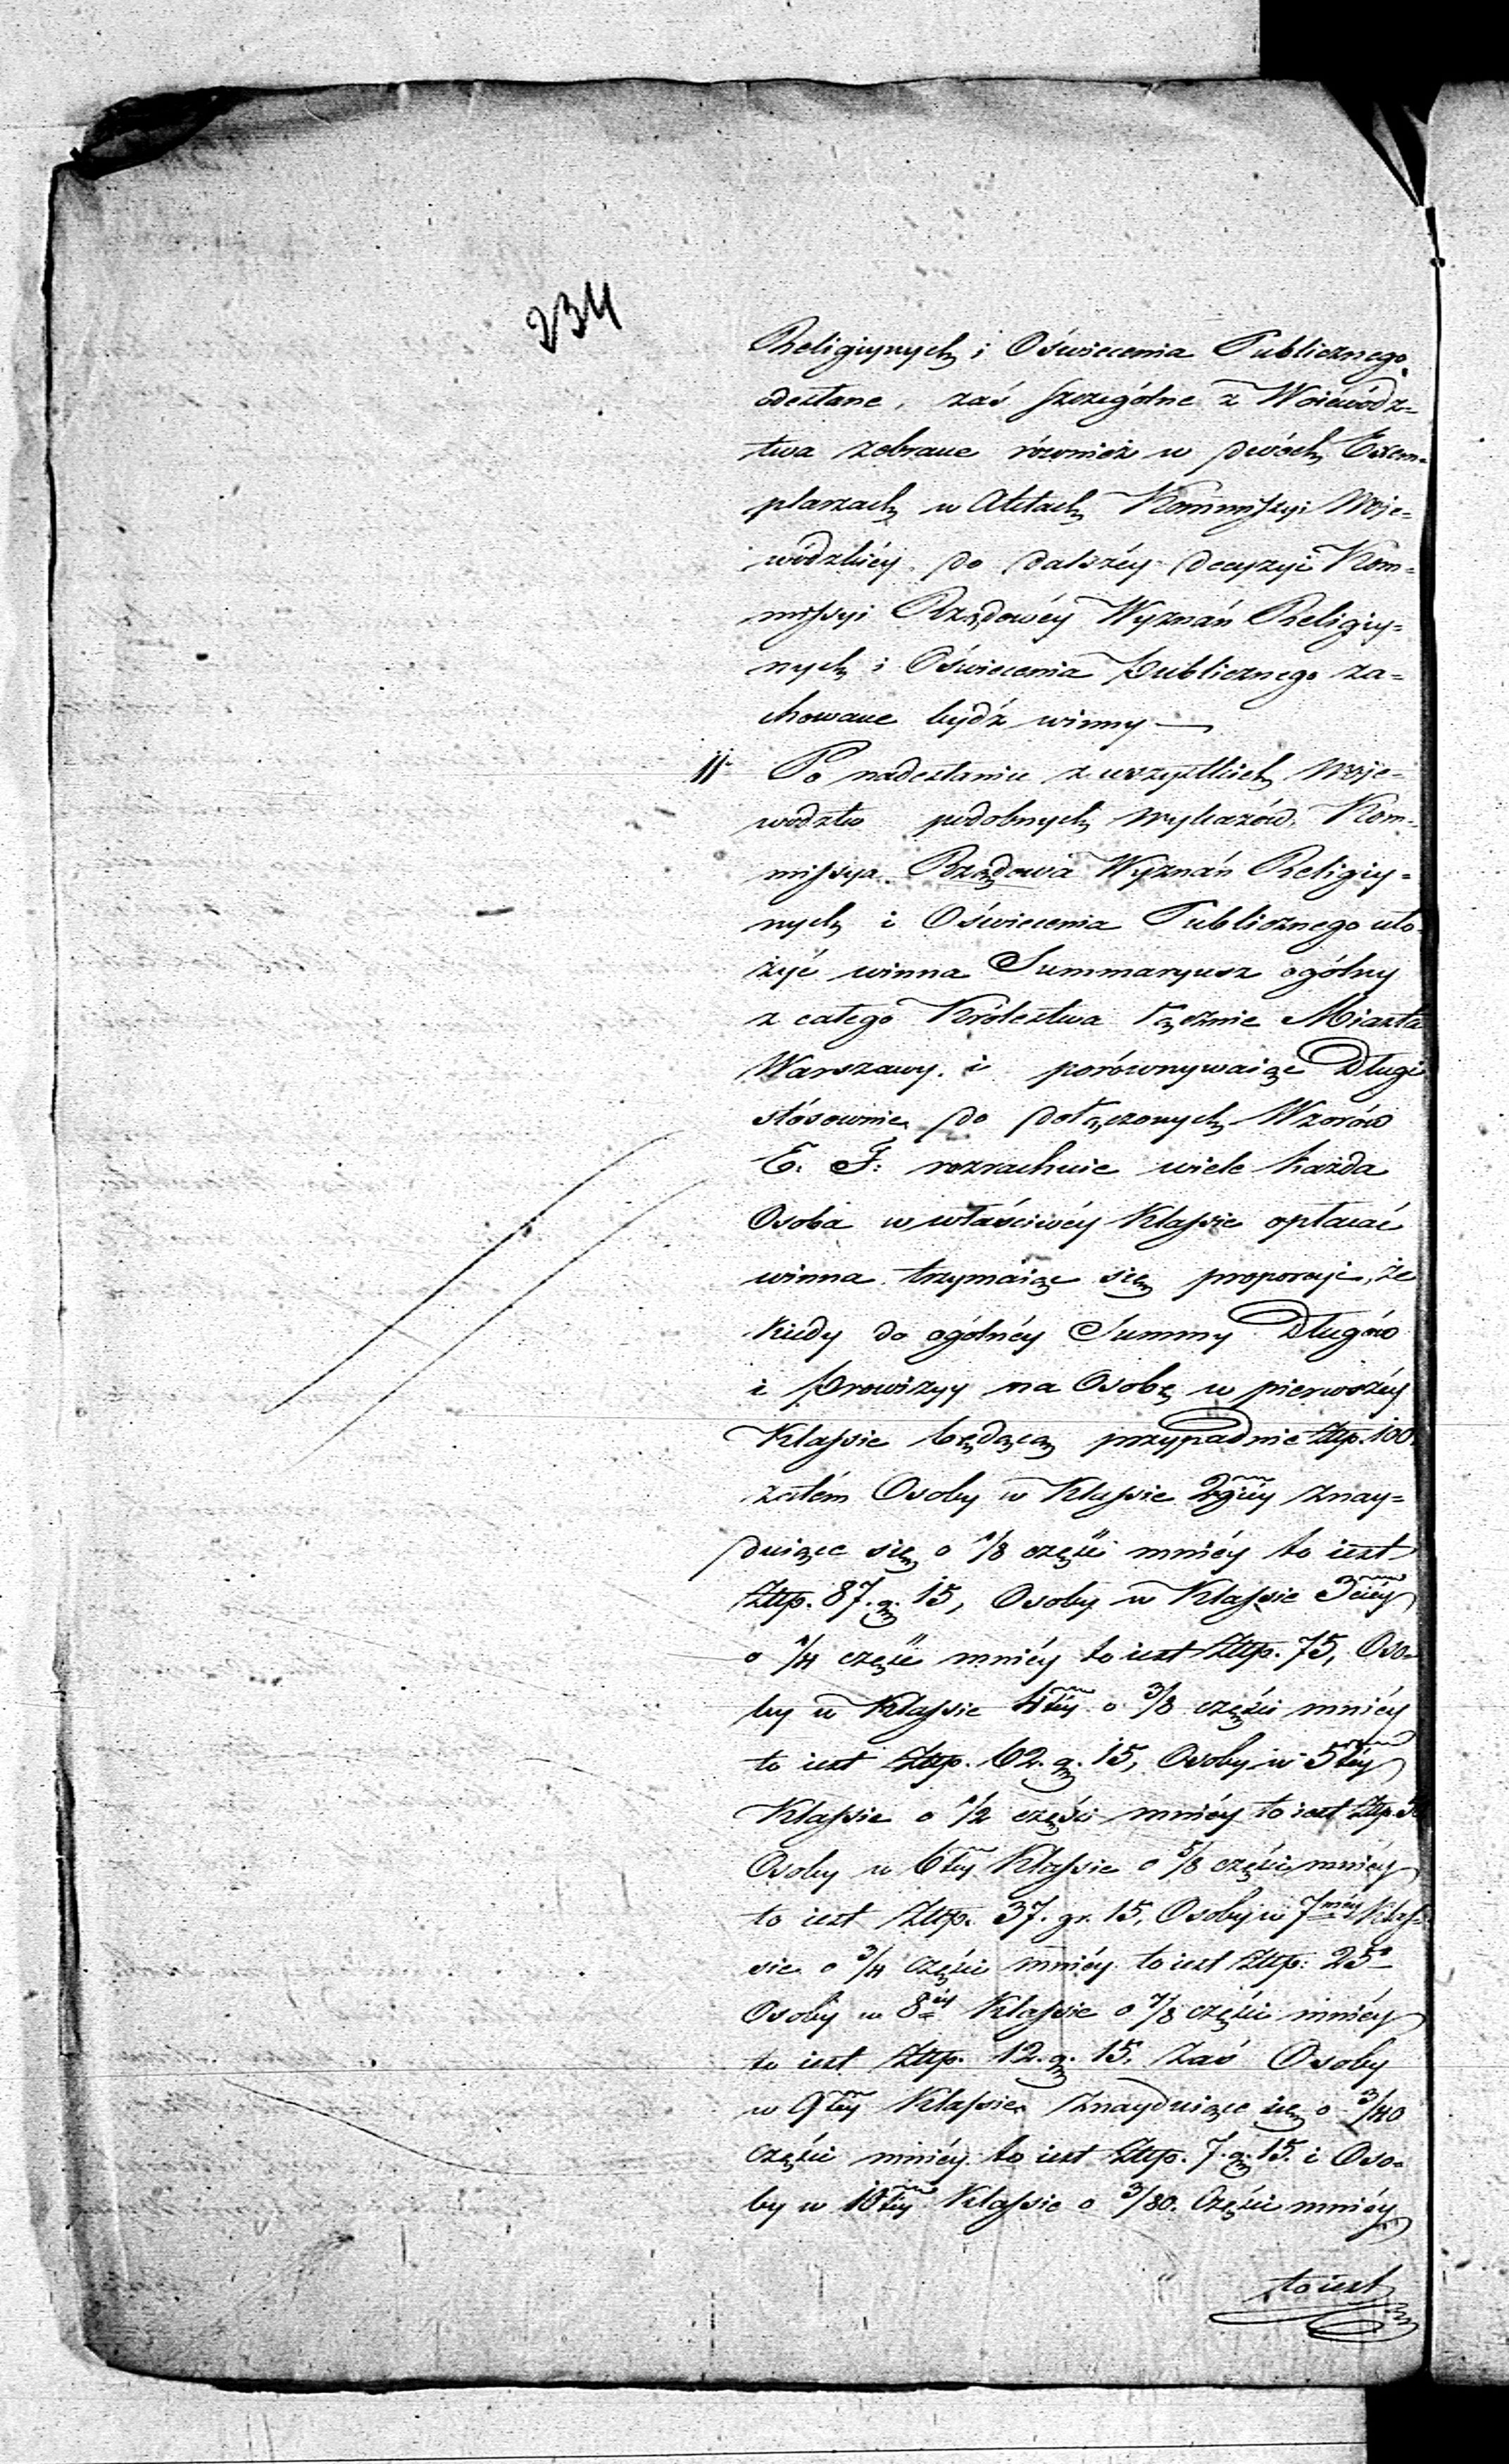 234
Religiynych i Oświecenia Publicznego
odesłane, zaś szczególne z Woiewódz=
twa zebrane również w dwóch Exem=
plarzach w Aktach Kommissyi Woje=
wódzkiéy do dalszéy decyzyi Kom=
missyi Rządowéy Wyznań Religiy=
nych i Oświecenia Publicznego za=
chowane bydź winny —
11. Po nadesłaniu z wszystkich Woje=
wodztw podobnych Wykazów, Kom=
missya Rządowa Wyznań Religiy=
nych i Oświecenia Publicznego uło=
żyć winna Summaryusz ogólny
z całego Królestwa łącznie Miasta
Warszawy, i porównywaiąc Długi
stósownie do dołączonych Wzorów
E: F: rozrachuie wiele każda
Osoba w właściwéy Klassie opłacać
winna trzymaiąc się proporcyi, że
kiedy do ogólnéy Summy Długów
i Prowizyy na Osobę w pierwszéy
Klassie będącą przypadnie Złtp. 100.
zatém Osoby w Klassie 2giéy znay=
duiące się o 1/8 części mniéy to iest
Złtp. 87. g. 15, Osoby w Klassie 3ciéy
o 1/4 części mniéy to iest Złtp. 75, Oso=
by w Klassie 4téy o 3/8 części mniéy
to iest Złtp. 62. g. 15, Osoby w 5téy
Klassie o 1/2 części mniéy to iest Złtp. 50
Osoby w 6téy Klassie o 5/8 części mniéy
to iest Złtp. 37. gr. 15, Osoby w 7méy Klas=
sie o 3/4 części mniéy to iest Złtp: 25
Osoby w 8éy Klassie o 7/8 części mniéy
to iest Złtp. 12. g. 15. Zaś Osoby
w 9téy Klassie znayduiące się o 3/40
części mniéy to iest Złtp. 7. g. 15. i Oso=
by w 10téy Klassie o 3/80. Części mniéy
to iest